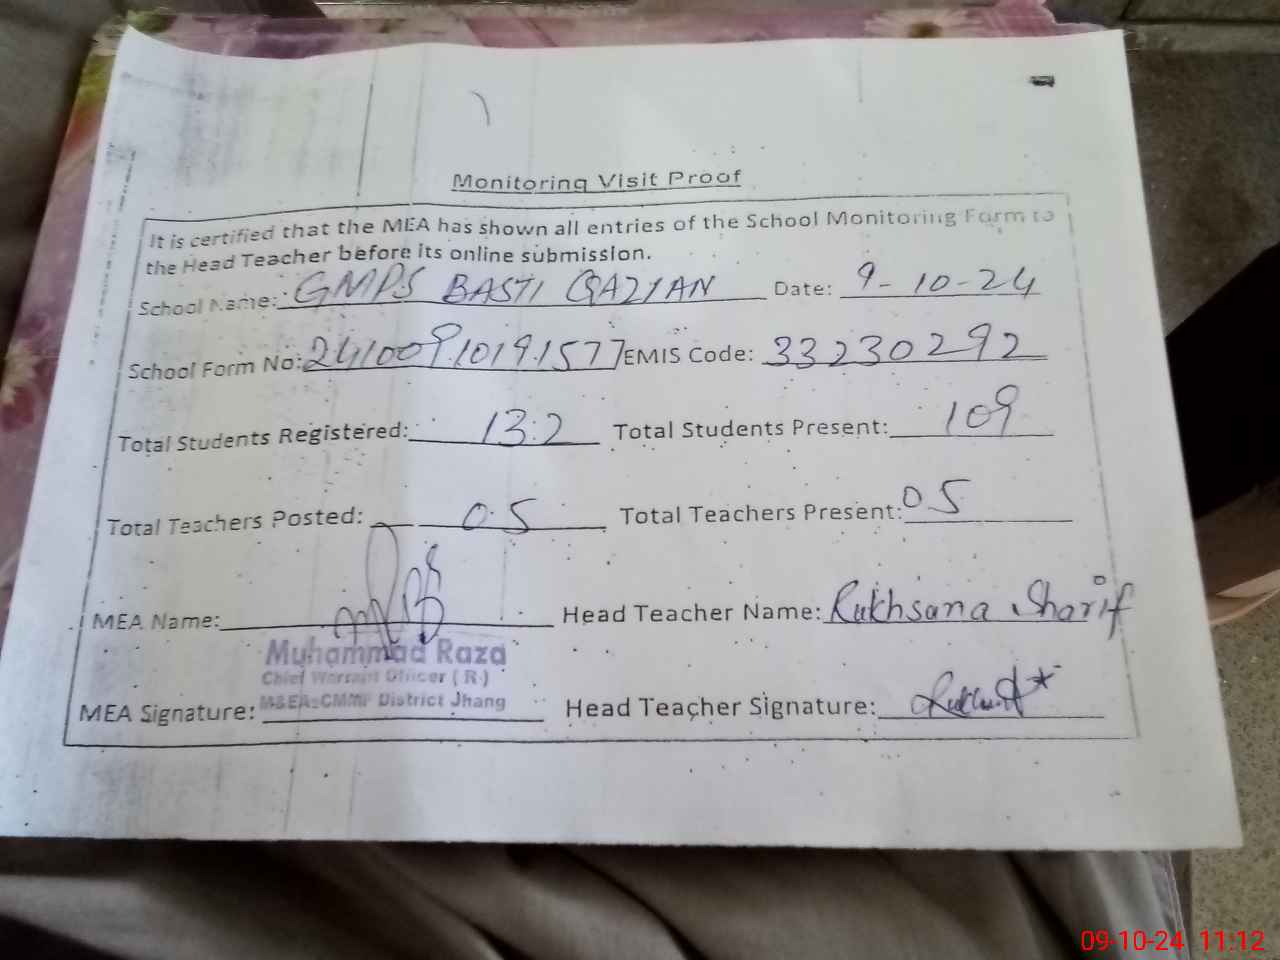 Monitoring Visit Proof
It is certified that the MEA has shown all entries of the School Monitoring Form to
the Head Teacher before its online submission.
School Name: GMPS BASTI QAZIAN Date: 9-10-24
School Form No: 2410091019.1577 EMIS Code: 33230292
Total Students Registered: 132 Total Students Present: 109
Total Teachers Posted: 05 Total Teachers Present: 05
MEA Name: Head Teacher Name: Rukhsana Sharif
Muhammad Raza
Chief Warrant Officer (R)
M&EA-CMMF District Jhang
MEA Signature: Head Teacher Signature:
09-10-24 11:12